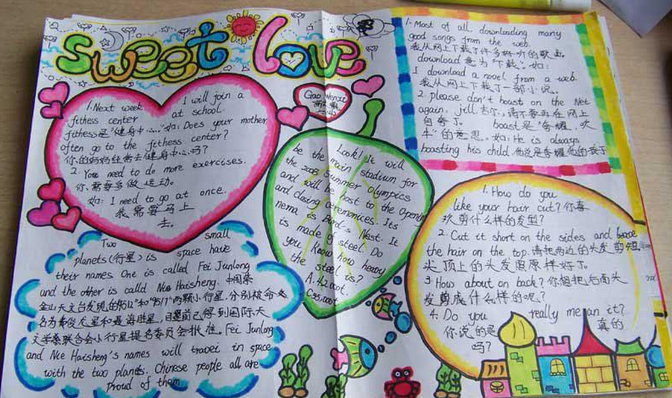 sweet love
1. Next week I will join a
fitness center at school.
fitness是"健身中心." 如: Does your mother
often go to the fitness center?
你的妈妈经常去健身中心吗?
2. You need to do more exercises.
你需要多做运动。
如: I need to go at once.
我需要马上
去。
Look! It will
be the main stadium for
the 2008 Summer Olympics
and will be host to the Opening
and Closing ceremonies. Its
nema is Bird's Nest. It
is made of steel. Do
you know how heavy
the steel is?
A. 42.000t.
1. Most of all downloading many
good songs from the web.
我从网上下载了许多好听的歌曲
download 意为"下载". 如:
I download a novel from a web.
我从网上下载了一部小说。
2. please don't boast on the Net
again, jill. 吉尔, 请不要再在网上
自夸了. boast是"夸耀, 吹
牛"的意思. 如: He is always
boasting his child.
1. How do you
like your hair cut? 你喜
欢剪什么样的发型?
2. Cut it short on the sides and leave
the hair on the top. 请把两边的头发剪短,
头顶上的头发照原样好了.
3. How about on back? 你想把后面头
发剪成什么样的呢?
4. Do you really mean it?
你说的是 真的
吗?
Two small
planets (行星) in space have
their names. One is called Fei Junlong
and the other is called Nie Haisheng. 中国紫
金山天文台发现的 两颗小行星, 分别被命
名为费俊龙星和聂海胜星, 目前已得到国际天
文学联合会小行星提名委员会批准. Fei Junlong
and Nie Haisheng's names will travel in space
with the two planets. Chinese people all are
Proud of them.